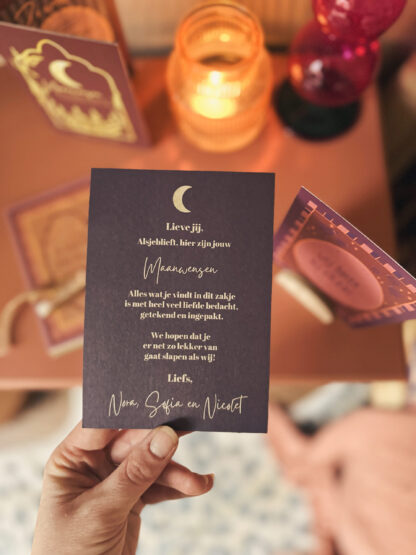 Lieve jij,
Alsjeblieft, hier zijn jouw
Maanwensen
Alles wat je vindt in dit zakje
is met heel veel liefde bedacht,
getekend en ingepakt.
We hopen dat je
er net zo lekker van
gaat slapen als wij!
Liefs,
Nora, Sofia en Nicolet